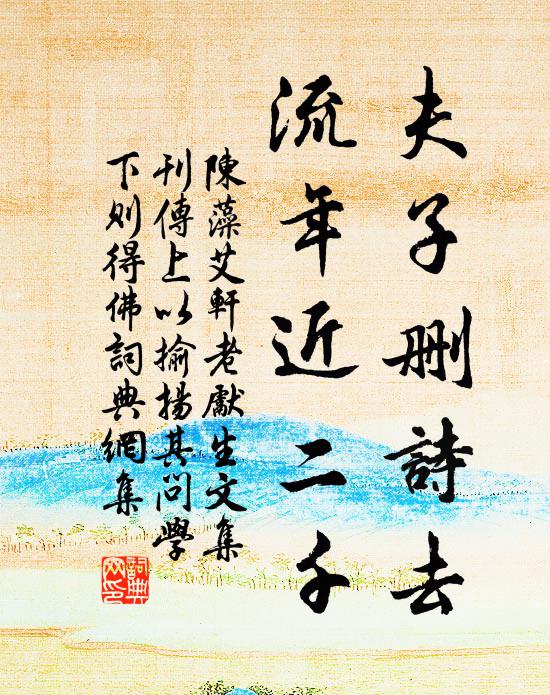 夫子刪詩去
流年近二千
陳藻艾軒老獻生文集
刊傳上以揄揚其問學
下則得佛詞典網集
詞典
網印